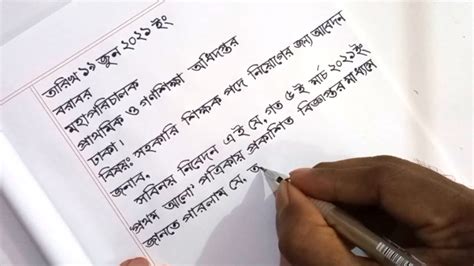 তারিখ ১৯ জুন ২০২১ ইং
বরাবর
মহাপরিচালক
প্রাথমিক ও গণশিক্ষা অধিদপ্তর
ঢাকা।
বিষয়: সহকারি শিক্ষক পদে নিয়োগের জন্য আবেদন
জনাব,
সবিনয় নিবেদন এই যে, গত ৫ ই মার্চ ২০২১ ইং
'প্রথম আলো' পত্রিকায় প্রকাশিত বিজ্ঞপ্তির মাধ্যমে
জানতে পারলাম যে, ত